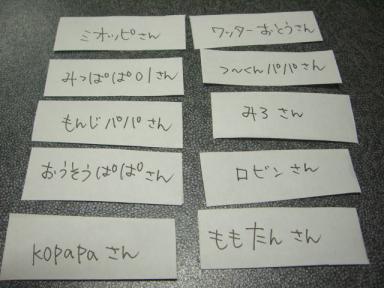 ミオッピさん
ワッターおとうさん
みっぱぱ01さん
つ〜くんパパさん
もんじパパさん
みろさん
おうそうぱぱさん
ロビンさん
kopapaさん
ももたんさん